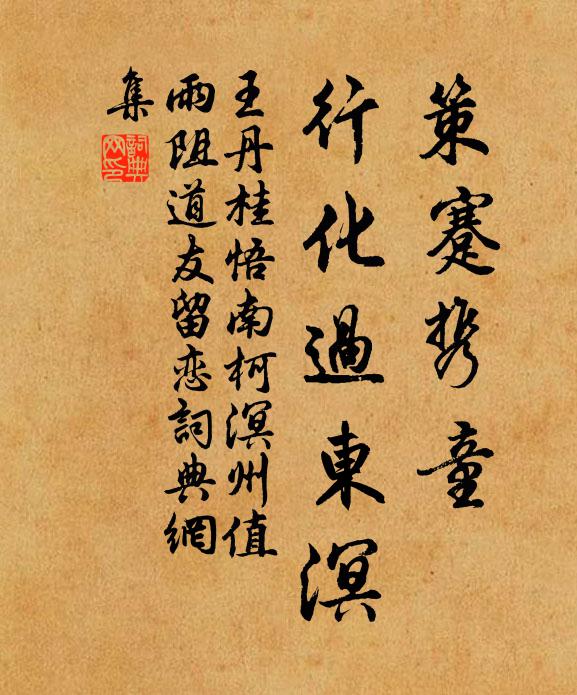 策蹇携童
行化過東溟
王丹桂悟南柯溟州值
雨阻道友留恋詞典網
集
詞典
网印